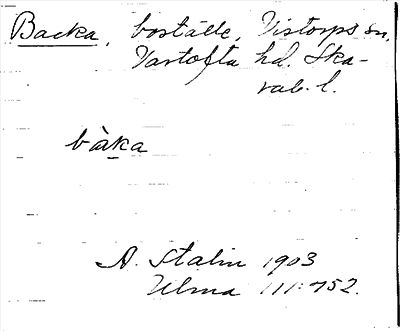 Backa, boställe, Vistorps sn,
Vartofta hd. Ska-
rab. l.
bàka
A. Stalin 1903
Ulma 111:752.